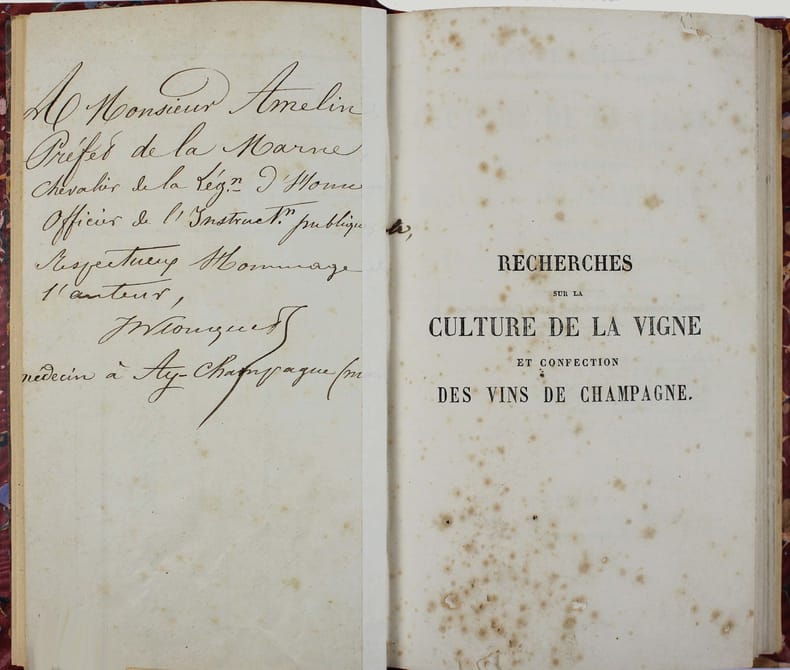 A Monsieur Amelin
Préfet de la Marne
Chevalier de la Lég.n d'Honn
Officier de l'Instruct.n publique,
Respectueux Hommage
l'auteur,
médecin à Ay-Champagne (m
RECHERCHES
SUR LA
CULTURE DE LA VIGNE
ET CONFECTION
DES VINS DE CHAMPAGNE.